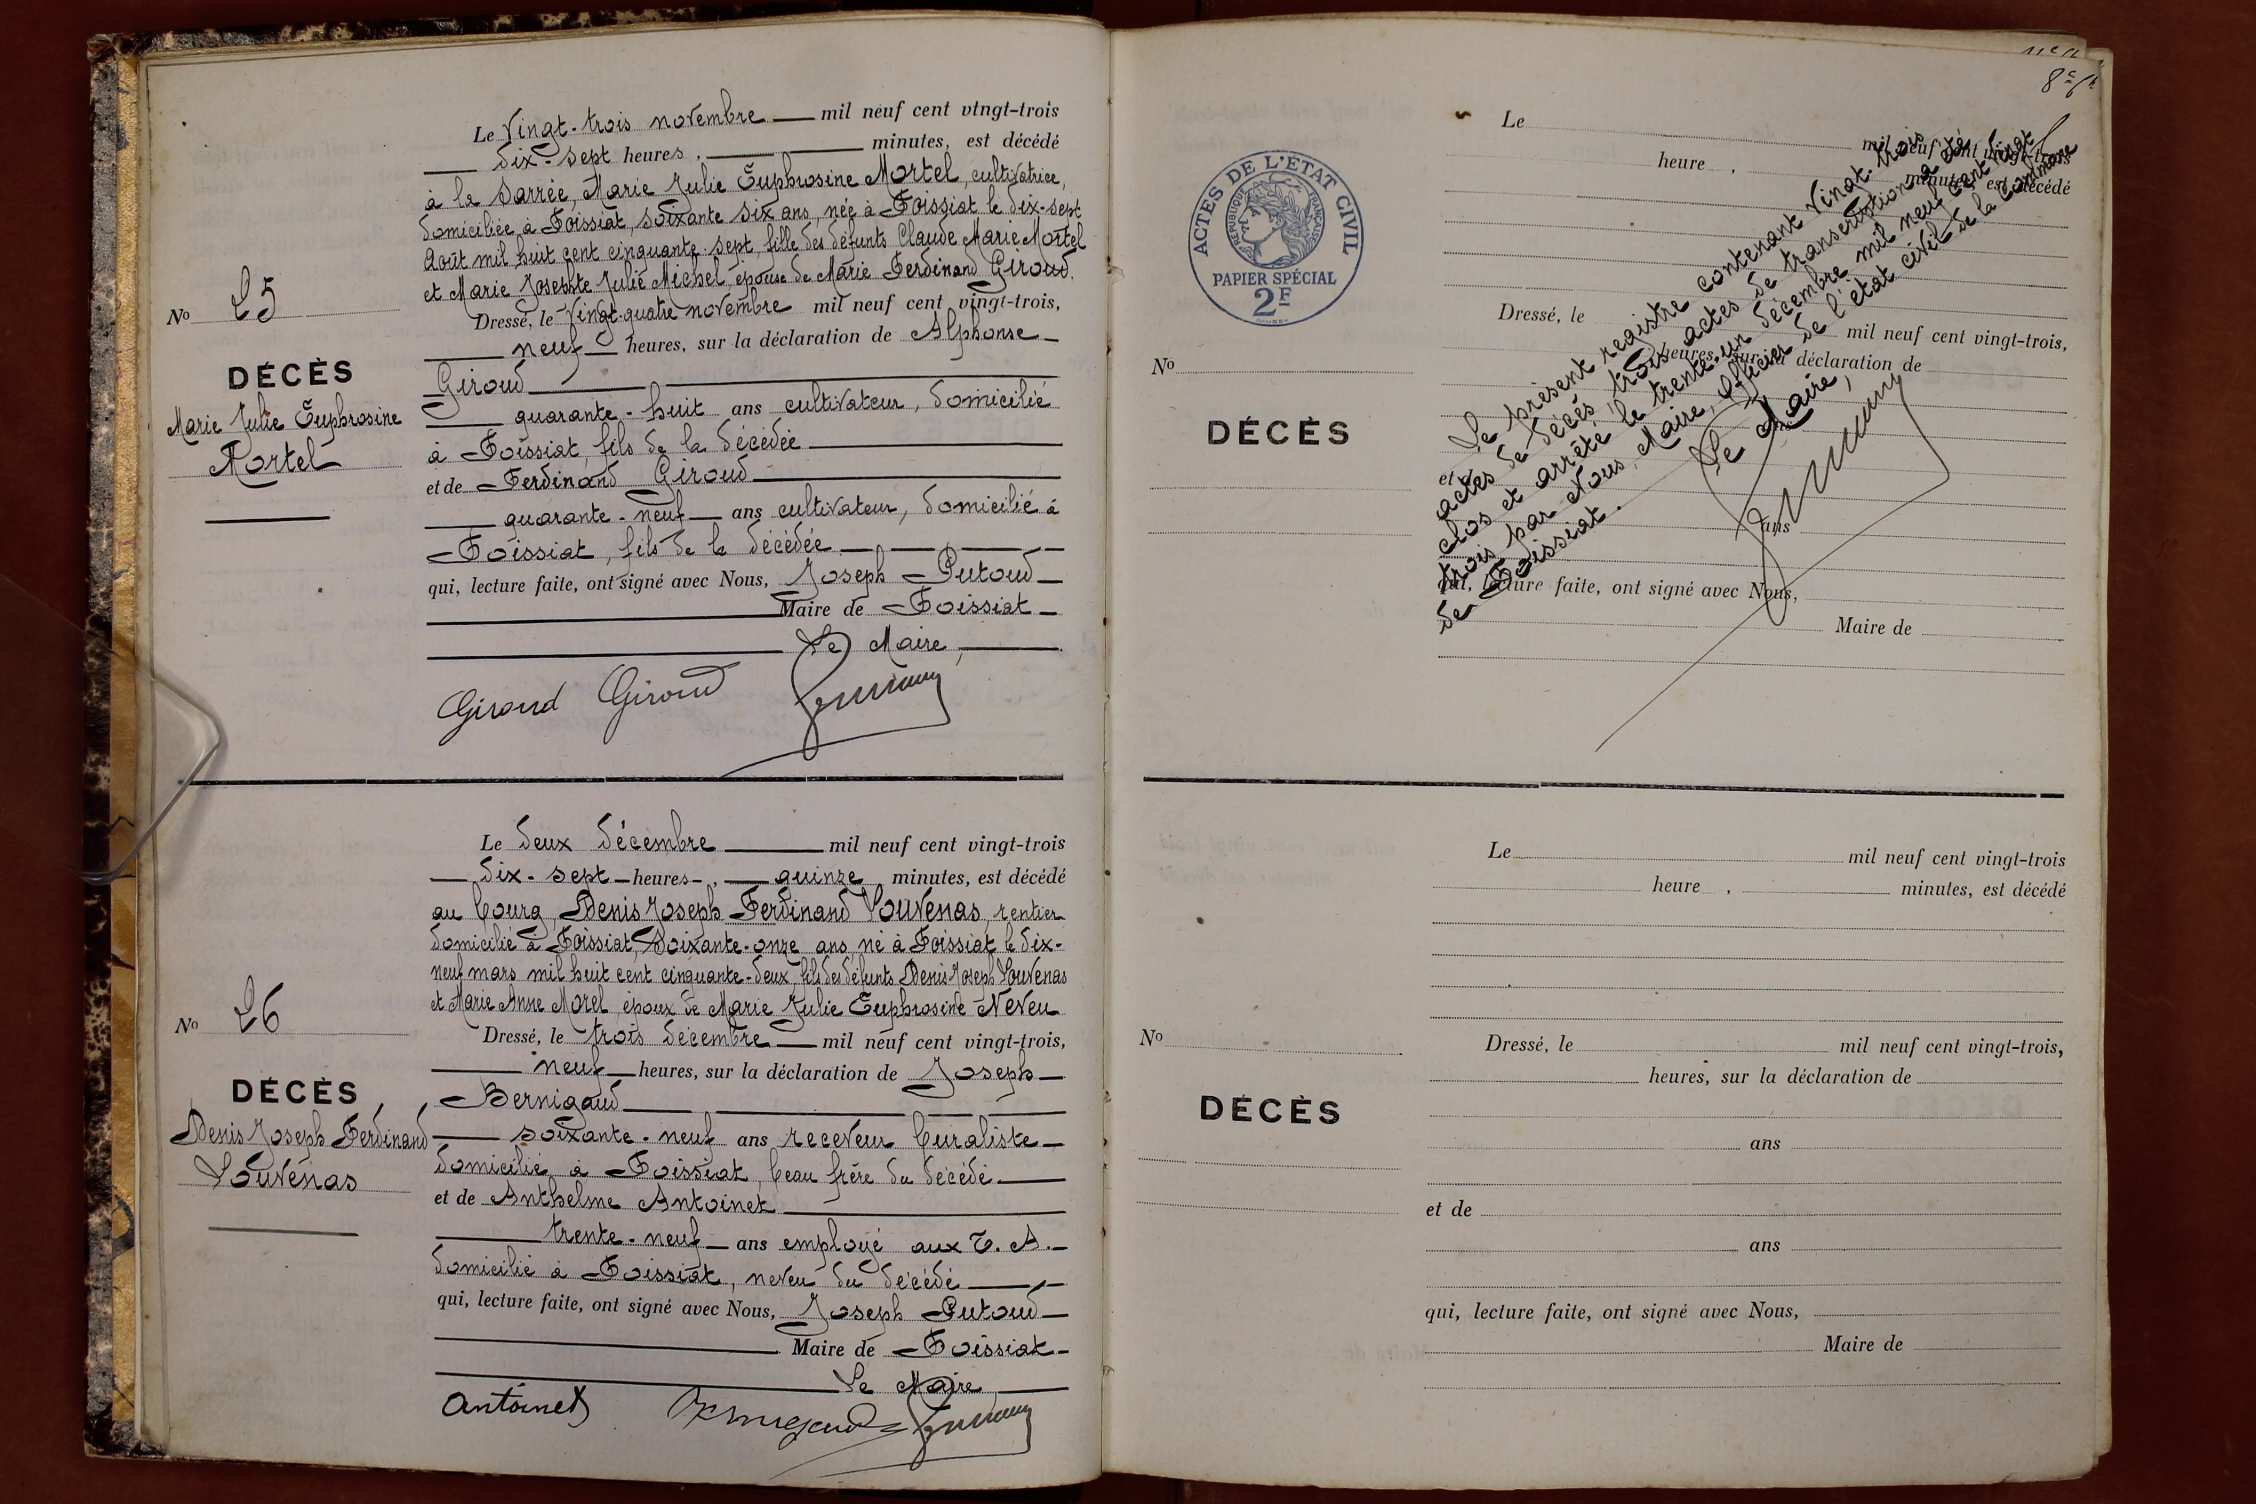 Le Vingt-trois novembre mil neuf cent vingt-trois
dix-sept heures, minutes, est décédé
à la Sarrée, Marie Julie Euphrosine Mortel, cultivatrice,
domiciliée à Foissiat, soixante six ans, née à Foissiat le dix-sept
Août mil huit cent cinquante-sept, fille des défunts Claude Marie Mortel
et Marie Josephte Julie Michel, épouse de Marie Ferdinand Giroud.
Dressé, le Vingt-quatre novembre mil neuf cent vingt-trois,
neuf heures, sur la déclaration de Alphonse
Giroud
quarante-huit ans cultivateur, domicilié
à Foissiat, fils de la décédée
et de Ferdinand Giroud
quarante-neuf ans cultivateur, domicilié à
Foissiat, fils de la décédée
qui, lecture faite, ont signé avec Nous, Joseph Putoud
Maire de Foissiat
Le Maire,
Giroud Giroud
No 25
DÉCÈS
Marie Julie Euphrosine
Mortel
Le deux décembre mil neuf cent vingt-trois
dix-sept heures, quinze minutes, est décédé
au bourg, Denis Joseph Ferdinand Souvenas, rentier
domicilié à Foissiat, Soixante-onze ans, né à Foissiat le dix-
neuf mars mil huit cent cinquante-deux, fils des défunts Denis Joseph Souvenas
et Marie Anne Morel, époux de Marie Julie Euphrosine Neveu
Dressé, le trois décembre mil neuf cent vingt-trois,
neuf heures, sur la déclaration de Joseph
Bernigaud
soixante-neuf ans receveur buraliste
domicilié à Foissiat, beau frère du décédé
et de Anthelme Antoinet
trente-neuf ans employé aux T. A.
domicilié à Foissiat, neveu du décédé
qui, lecture faite, ont signé avec Nous, Joseph Putoud
Maire de Foissiat
Le Maire
Antoinet Bernigaud
No 26
DÉCÈS
Denis Joseph Ferdinand
Souvenas
8e
ACTES DE L'ÉTAT CIVIL
RÉPUBLIQUE FRANÇAISE
PAPIER SPÉCIAL
2F
No
DÉCÈS
Le mil neuf cent vingt-trois
heure , minutes, est décédé
Dressé, le mil neuf cent vingt-trois,
heures, sur la déclaration de
ans
et de
ans
qui, lecture faite, ont signé avec Nous,
Maire de
Le présent registre contenant Vingt-trois
actes de décès, trois actes de transcription a été
clos et arrêté le trente-un décembre mil neuf cent vingt
trois par Nous, Maire, Officier de l'état civil de la Commune
de Foissiat.
Le Maire,
Le mil neuf cent vingt-trois
heure , minutes, est décédé
Dressé, le mil neuf cent vingt-trois,
heures, sur la déclaration de
No
DÉCÈS
ans
et de
ans
qui, lecture faite, ont signé avec Nous,
Maire de